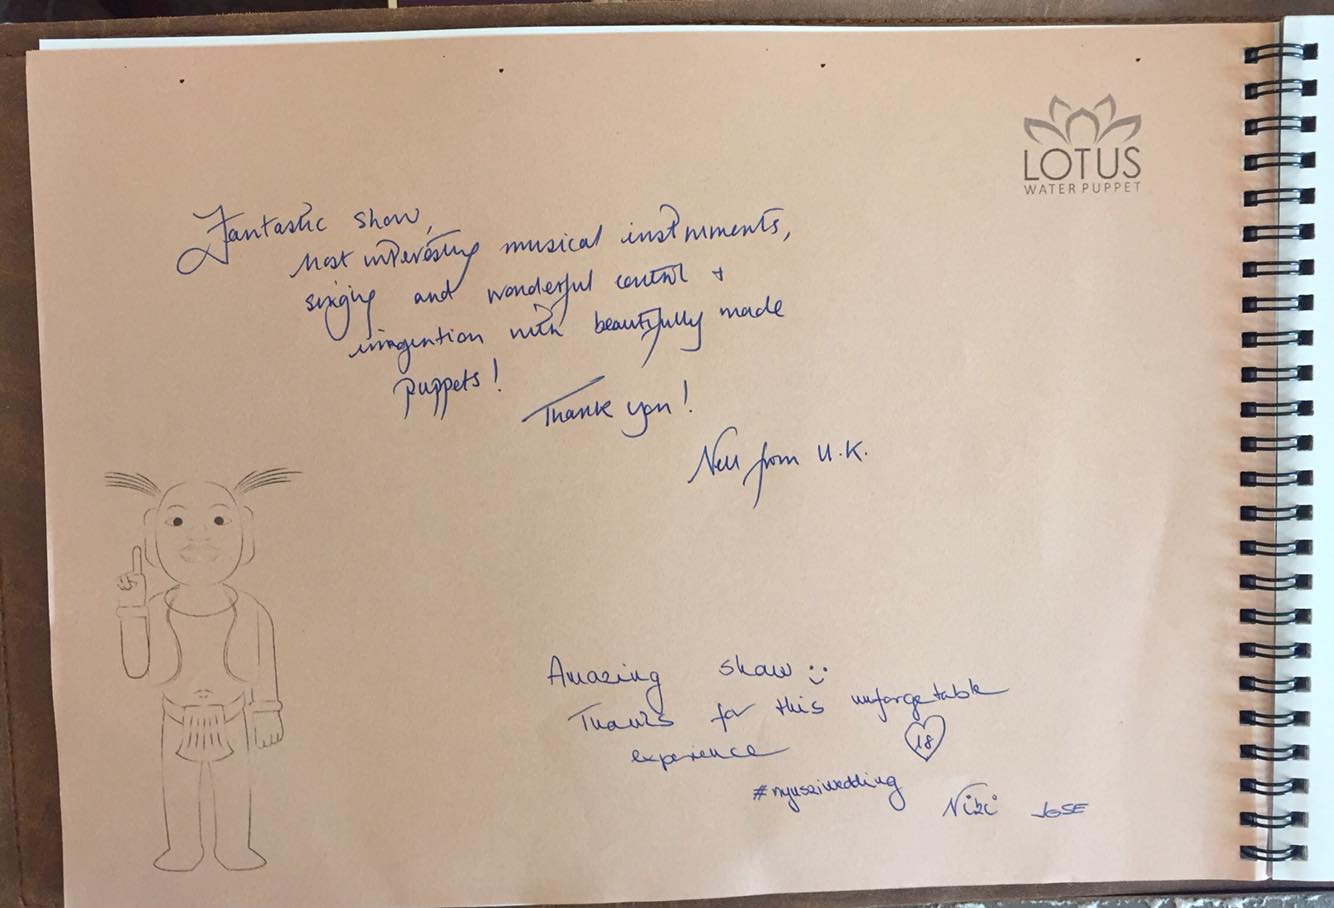 LOTUS
WATER PUPPET
Fantastic show,
Most interesting musical instruments,
singing and wonderful control +
imagention with beautifully made
puppets!
Thank you!
from U.K.
Amazing show
Thanks for this unforgetable
experience
18
#nyusziwedding
Niki JOSE